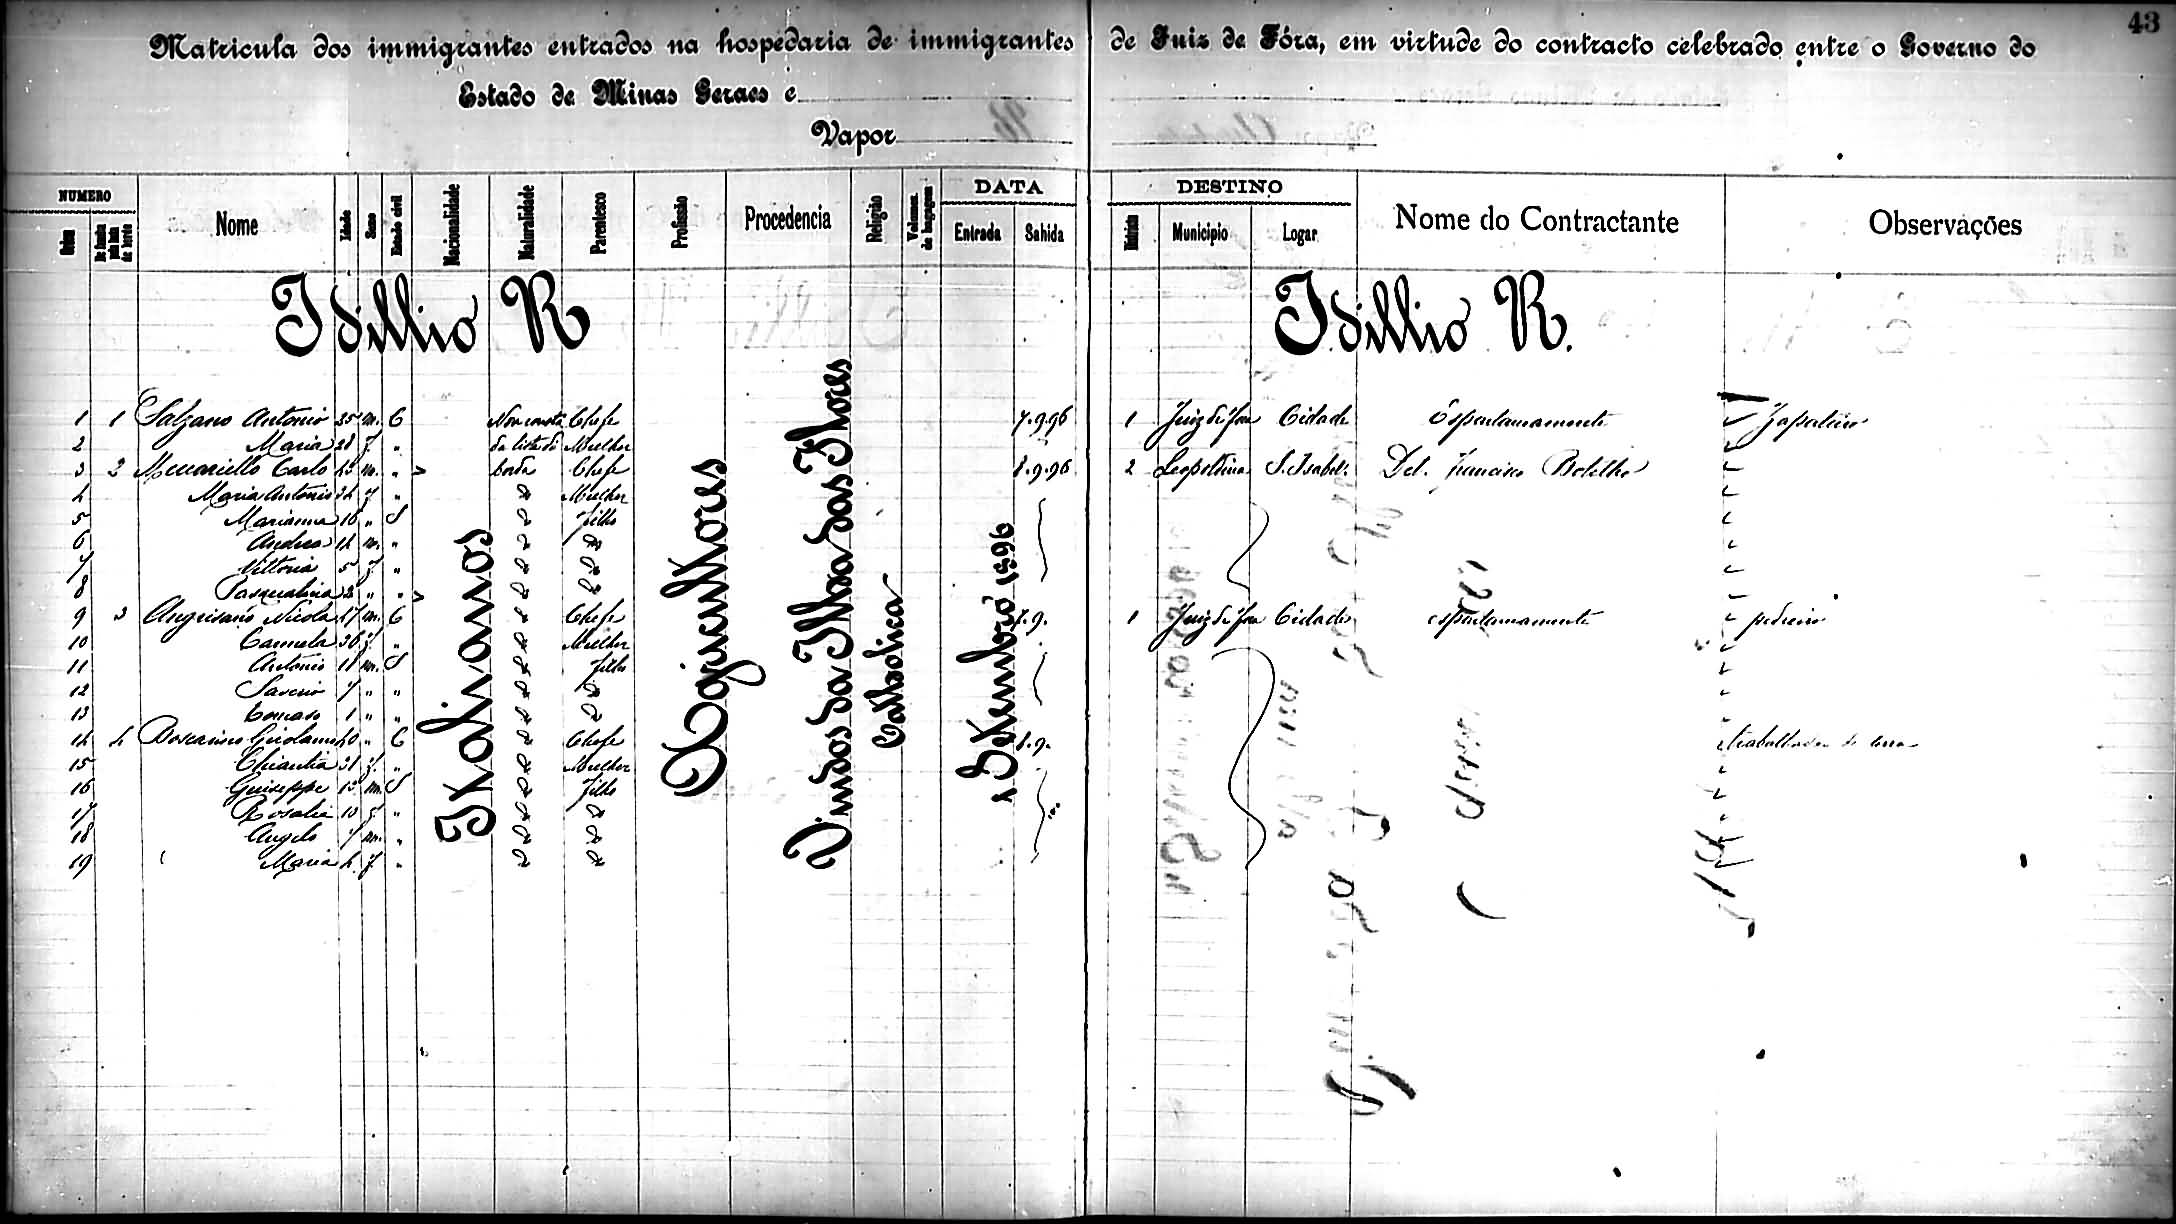 43
Matricula dos immigrantes entrados na hospedaria de immigrantes de Juiz de Fóra, em virtude do contracto celebrado entre o Governo do
Estado de Minas Geraes e
Vapor
NUMERO Nome Idade Sexo Estado civil Nacionalidade Naturalidade Parentesco Profissão Procedencia Religião Volumes de bagagem DATA Entrada Sahida DESTINO Municipio Logar Nome do Contractante Observações
Idillio R Idillio R.
Italianos
Agricultores
Vindos da Ilha das Flores
Catholica
1 Setembro 1896
1 1 Salzano Antonio 35 m. C Non consta Chefe 7.9.96 1 Juiz de Fora Cidade Espontaneamente Zapateiro
2 Maria 28 f " da lista di Mulher
3 2 Meccariello Carlo 43 m. " bordo Chefe 8.9.96 2 Leopoldina S. Isabel Del. Francisco Botelho
4 Maria Antonia 34 f " Mulher
5 Marianna 16 " S filho
6 Andrea 14 m. "
7 Vittoria 5 f. "
8 Pasqualina 2 " "
9 3 Angrisano Nicola 47 m. C Chefe 7.9. 1 Juiz de Fora Cidade espontaneamente pedreiro
10 Carmela 36 f. " Mulher
11 Antonio 11 m. S filho
12 Saverio 7 " "
13 Tomaso 1 " "
14 4 Boscarino Girolamo 40 " C Chefe 8.9. trabalhador de terra
15 31 f. " Mulher
16 Guiseppe 13 m. S filho
17 Rosalia 10 f. "
18 Angelo 7 m. "
19 Maria 4 f "